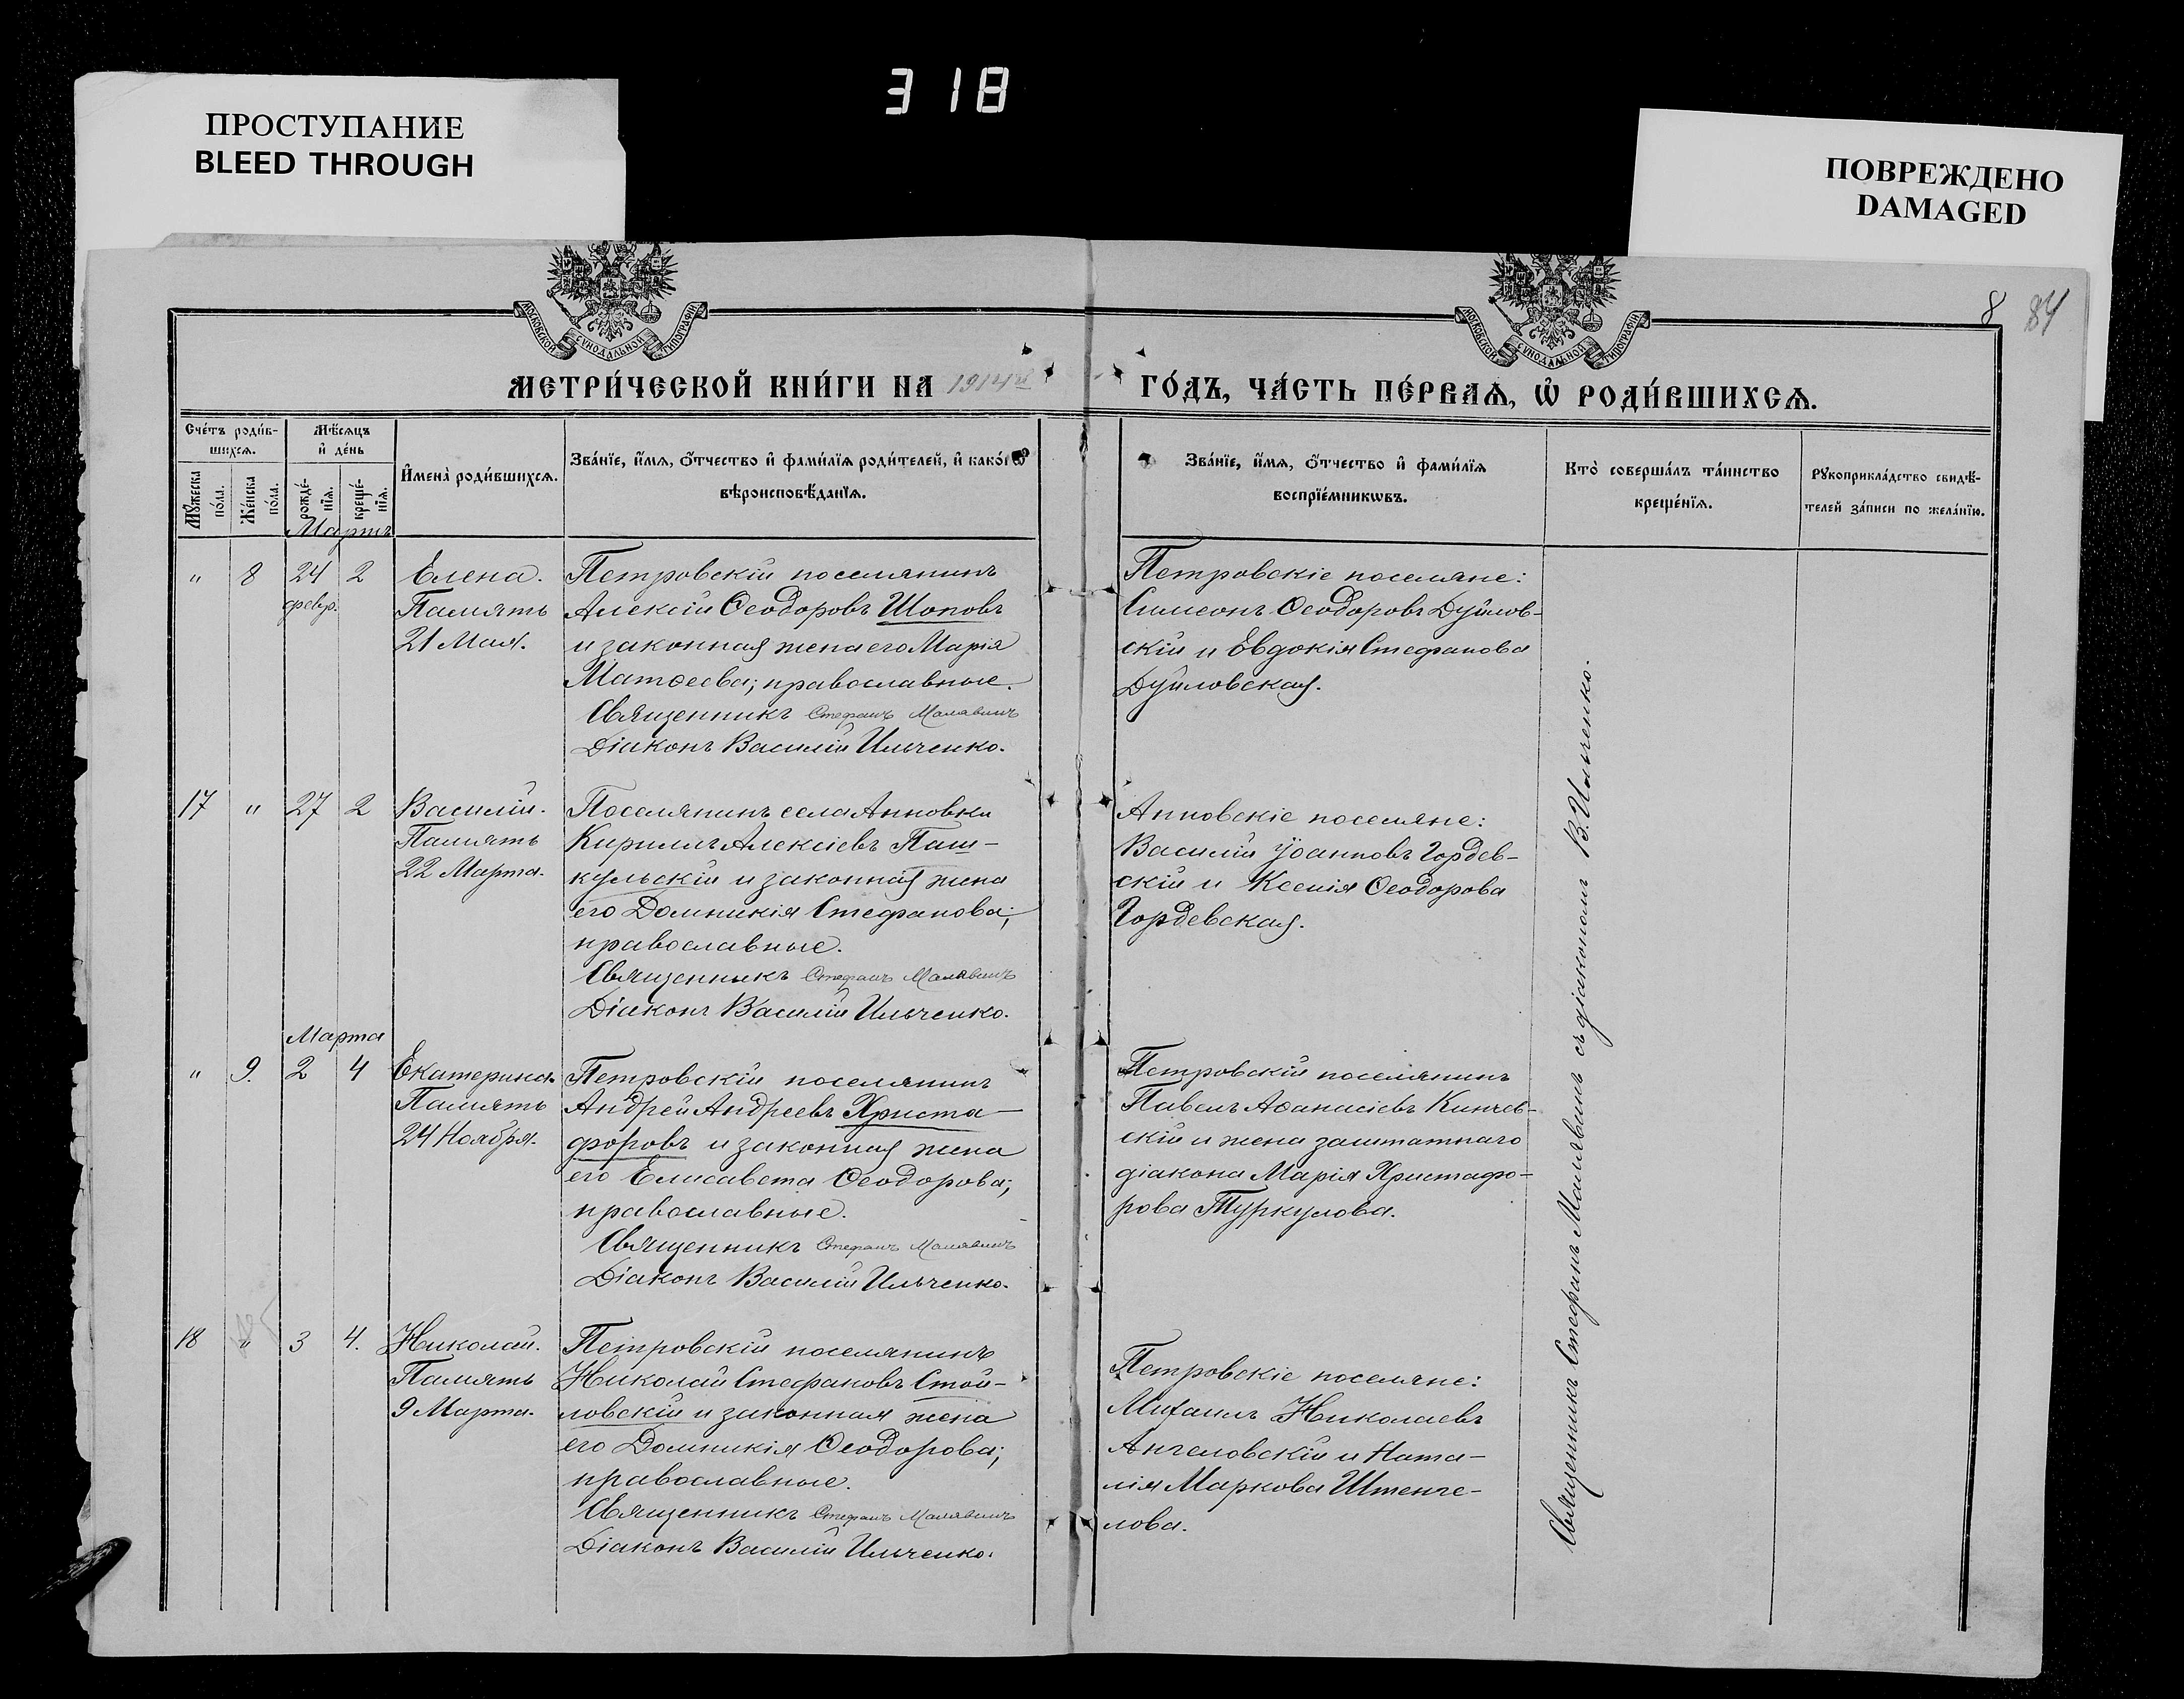 318
ПРОСТУПАНИЕ
BLEED THROUGH
ПОВРЕЖДЕНО
DAMAGED
МОСКОВСКОЙ СѴНОДАЛЬНОЙ ТИПОГРАФІИ
МОСКОВСКОЙ СѴНОДАЛЬНОЙ ТИПОГРАФІИ
8 84
МЕТРИ́ЧЕСКОЙ КНИ́ГИ НА 1914й
ГО́ДЪ, ЧА́СТЬ ПЕ́РВАѦ, Ѡ҆ РОДИ́ВШИХСѦ.
Сче́тъ роди́в-
шихсѧ.
Мꙋ́жеска
по́ла.
Же́нска
по́ла.
Мѣ́сѧцъ
и҆ де́нь
рожде́-
нїѧ.
креще́-
нїѧ.
И҆мена̀ роди́вшихсѧ.
Зва́нїе, и҆́мѧ, ѻ҆́тчество и҆ фами́лїѧ роди́телей, и҆ како́гѡ
вѣроисповѣ́данїѧ.
Зва́нїе, и҆́мѧ, ѻ҆́тчество и҆ фами́лїѧ
воспрїе́мникѡвъ.
Кто̀ соверша́лъ та́инство
креще́нїѧ.
Рꙋкоприкла́дство свидѣ́-
телей за́писи по жела́нїю.
Мартъ
" 8 24 2
февр.
Елена.
Память
21 Мая.
Петровскій поселянинъ
Алексій Ѳеодоровъ Шоповъ
и законная жена его Марія
Матѳеева; православные.
Священникъ Стефанъ Малявинъ
Діаконъ Василій Ильченко.
Петровскіе поселяне:
Симеонъ Ѳеодоровъ Дуйлов-
скій и Евдокія Стефанова
Дуйловская.
17 " 27 2
Василій.
Память
22 Марта.
Поселянинъ села Анновки
Кириллъ Алексіевъ Паш-
кульскій и законная жена
его Домникія Стефанова;
православные.
Священникъ Стефанъ Малявинъ
Діаконъ Василій Ильченко.
Анновскіе поселяне:
Василій Іоанновъ Гордев-
скій и Ксенія Ѳеодорова
Гордевская.
Марта
" 9. 2 4
Екатерина.
Память
24 Ноября.
Петровскій поселянинъ
Андрей Андреевъ Христа-
форовъ и законная жена
его Елисавета Ѳеодорова;
православные.
Священникъ Стефанъ Малявинъ
Діаконъ Василій Ильченко.
Петровскій поселянинъ
Павелъ Аѳанасіевъ Кинчев-
скій и жена заштатнаго
діакона Марія Христафо-
рова Туркулова.
18 " 3 4.
Николай.
Память
9 Марта.
Петровскій поселянинъ
Николай Стефановъ Стои-
ловскій и законная жена
его Домникія Ѳеодорова;
православные.
Священникъ Стефанъ Малявинъ
Діаконъ Василій Ильченко.
Петровскіе поселяне:
Михаилъ Николаевъ
Ангеловскій и Ната-
лія Маркова Штенге-
лова.
Священникъ Стефанъ Малявинъ съ діакономъ В. Ильченко.